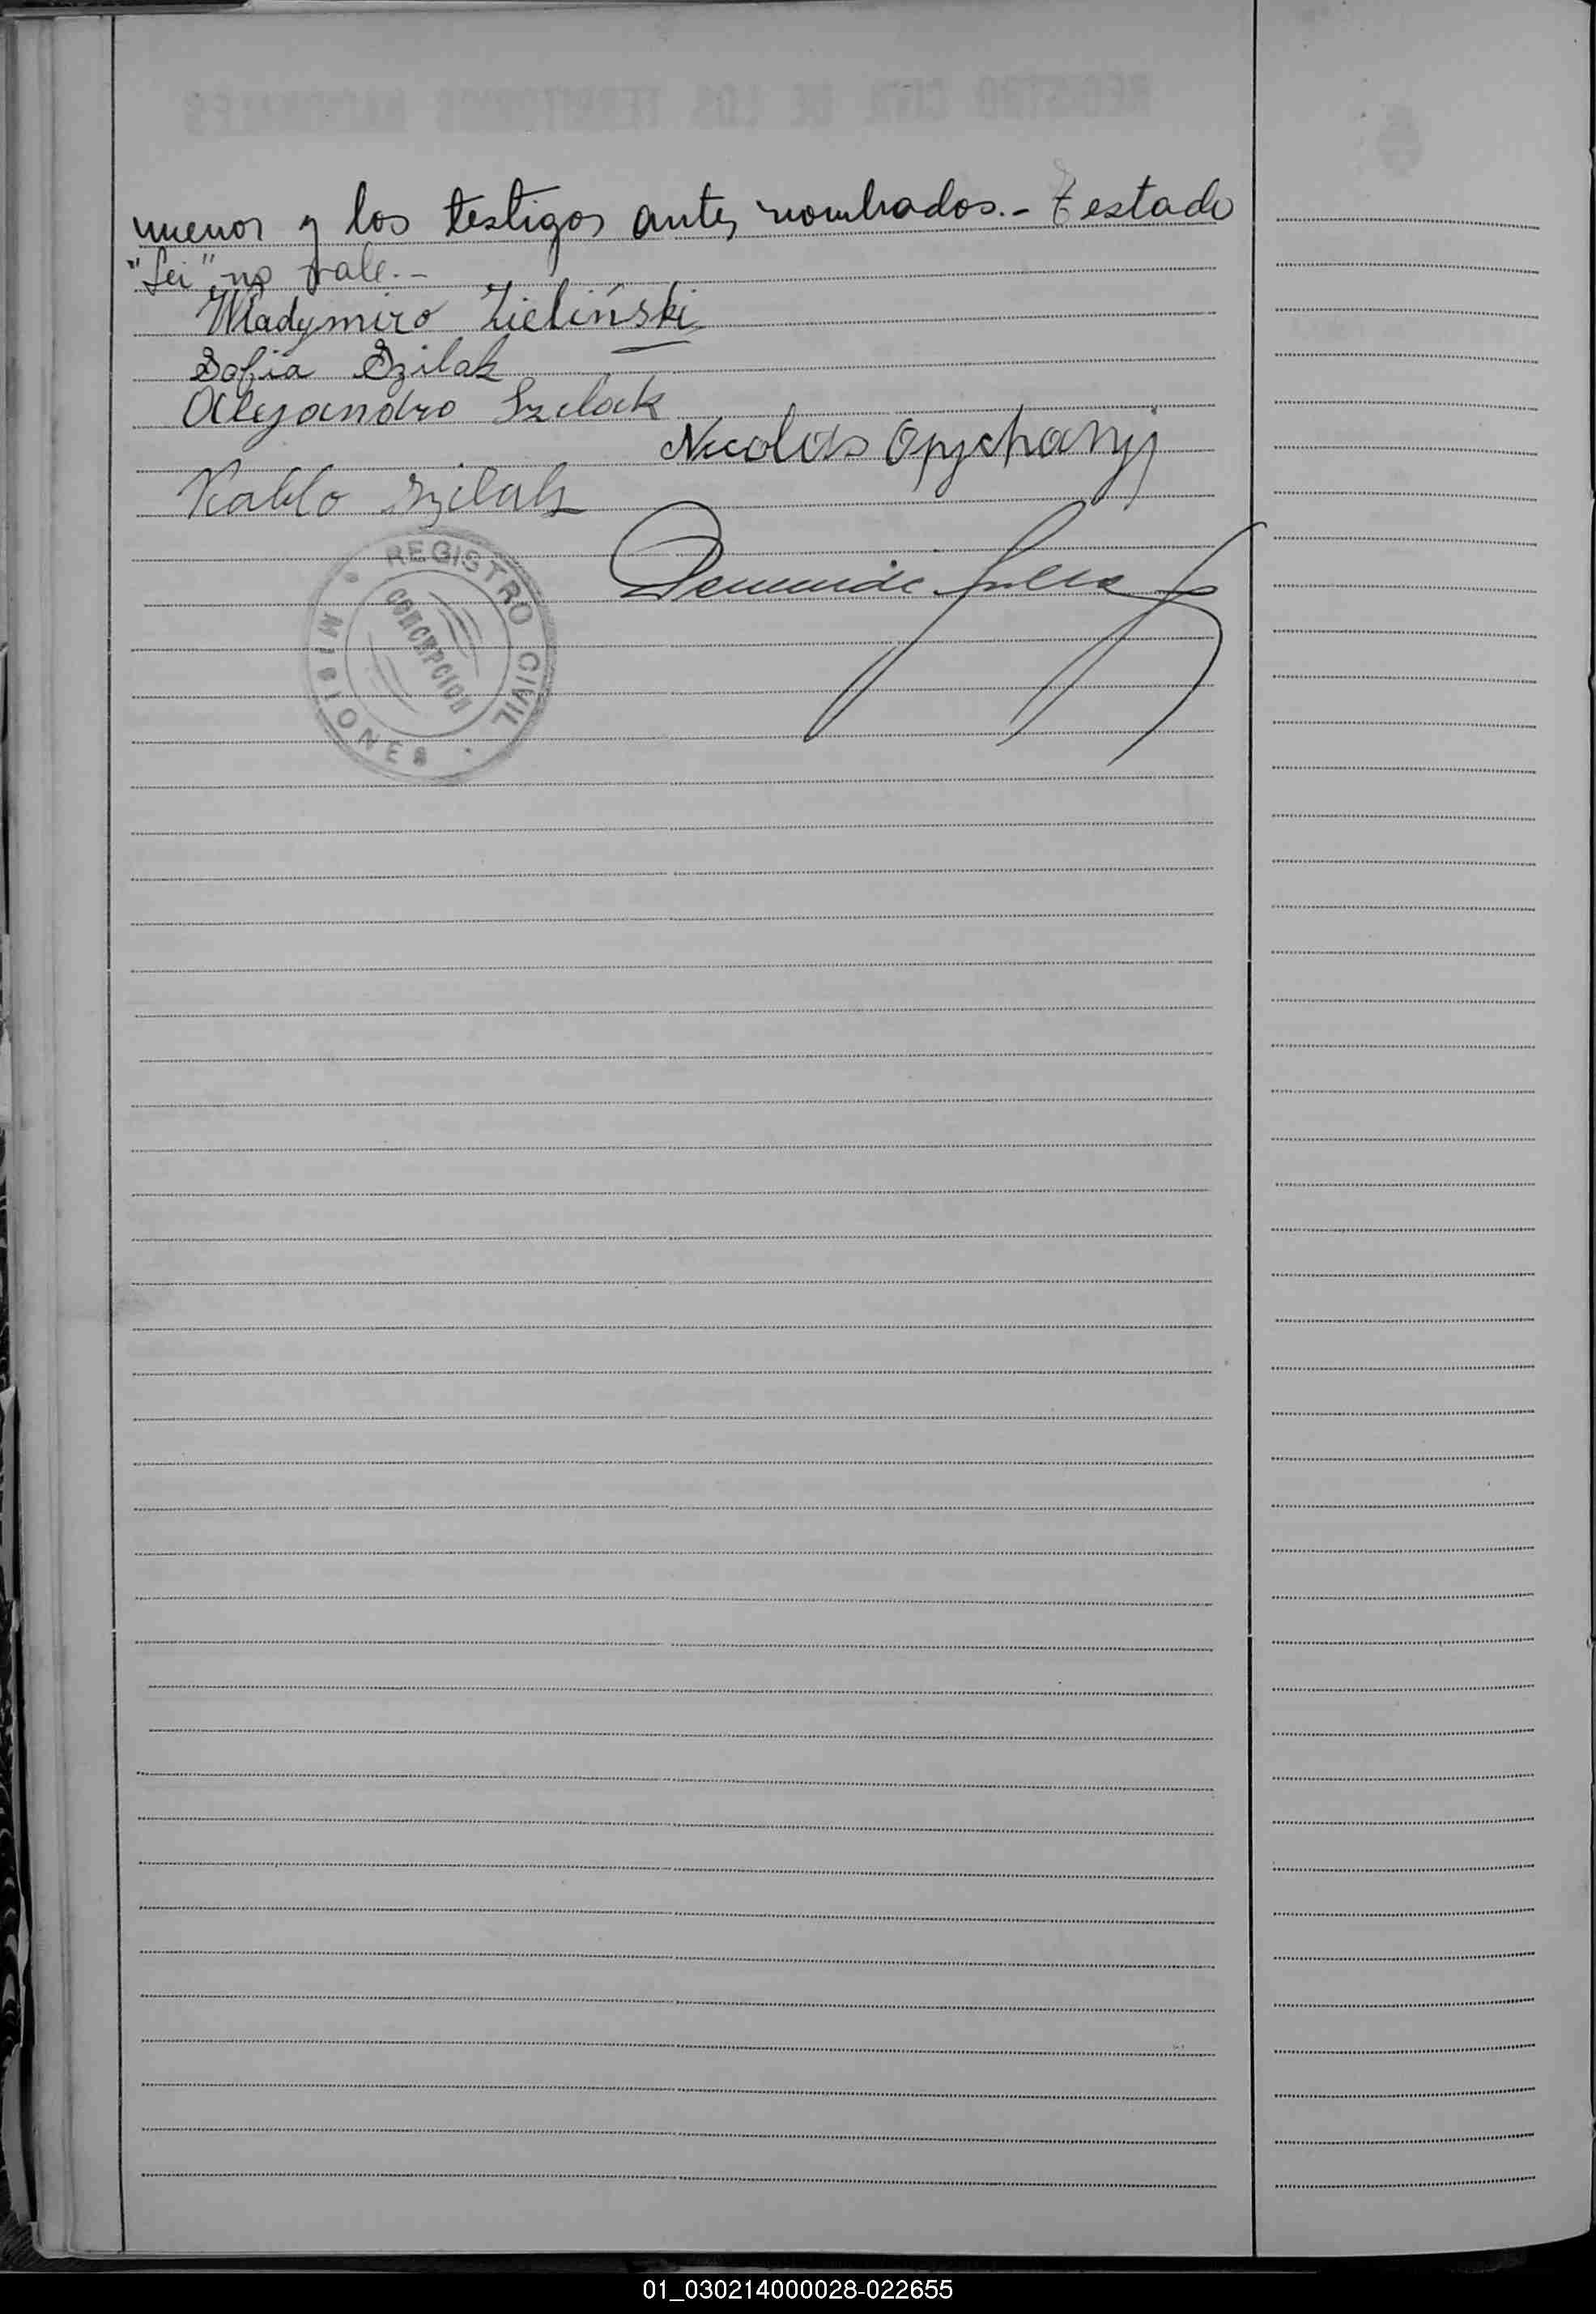 menor y los testigos antes nombrados.- Testado
"Sei" no vale.-
Władymiro Zieliński
Sofia Szilak
Alejandro Szilak
Nicolás
Pablo Szilak
REGISTRO CIVIL
CONCEPCION
MISIONES
01_030214000028-022655